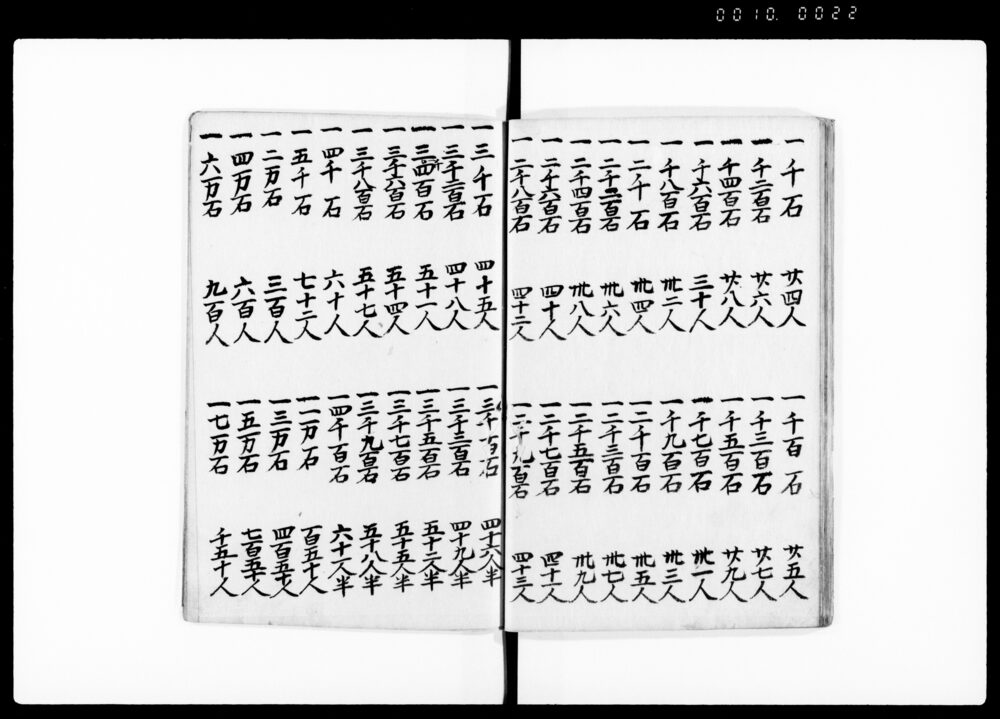 0010. 0022
一千石 廿四人 一千百石 廿五人
一千二百石 廿六人 一千三百石 廿七人
一千四百石 廿八人 一千五百石 廿九人
一千六百石 三十人 一千七百石 卅一人
一千八百石 卅二人 一千九百石 卅三人
一二千石 卅四人 一二千百石 卅五人
一二千二百石 卅六人 一二千三百石 卅七人
一二千四百石 卅八人 一二千五百石 卅九人
一二千六百石 四十人 一二千七百石 四十一人
一二千八百石 四十二人 一二千九百石 四十三人
一三千石 四十五人 一三千百石 四十六人半
一三千二百石 四十八人 一三千三百石 四十九人半
一三千四百石 五十一人 一三千五百石 五十二人半
一三千六百石 五十四人 一三千七百石 五十五人半
一三千八百石 五十七人 一三千九百石 五十八人半
一四千石 六十人 一四千百石 六十一人半
一五千石 七十二人 一一万石 百五十人
一二万石 三百人 一三万石 四百五十人
一四万石 六百人 一五万石 七百五十人
一六万石 九百人 一七万石 千五十人